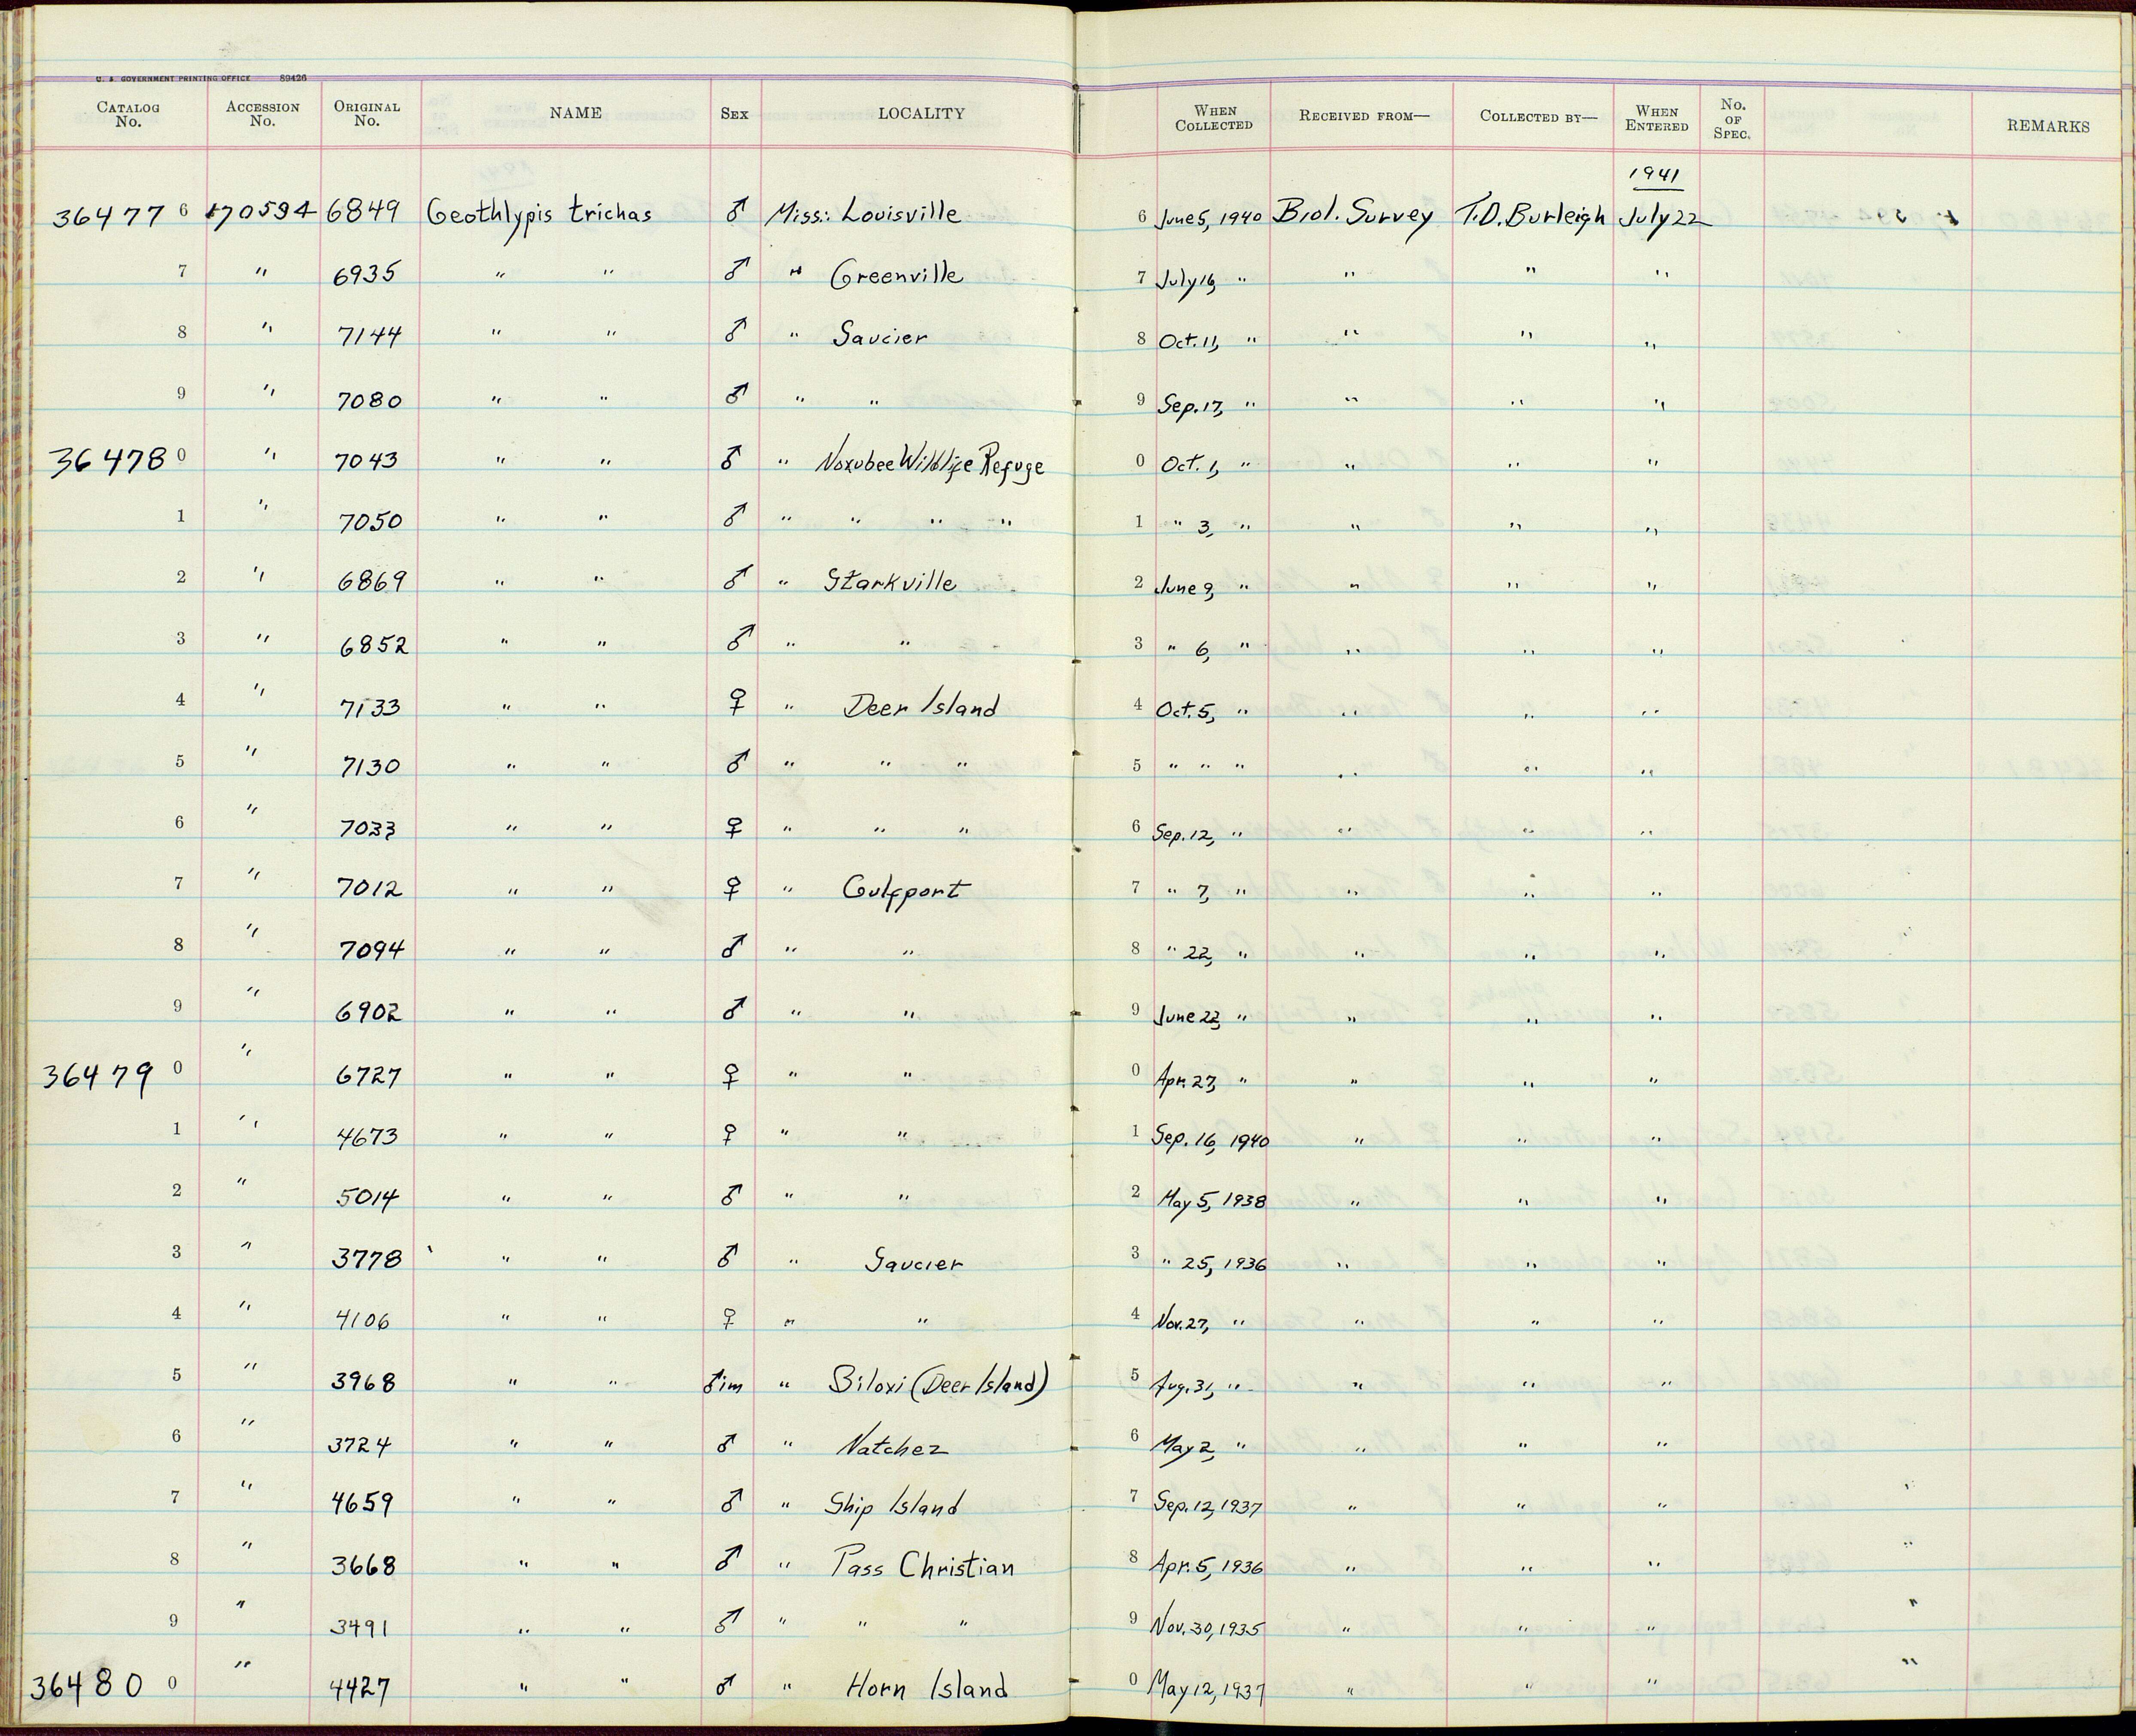 U. S. GOVERNMENT PRINTING OFFICE 89426
CATALOG No. ACCESSION No. ORIGINAL No. NAME SEX LOCALITY WHEN COLLECTED RECEIVED FROM— COLLECTED BY— WHEN ENTERED No. OF SPEC. REMARKS
1941
36477 6 170594 6849 Geothlypis trichas ♂ Miss: Louisville 6 June 5, 1940 Biol. Survey T.D. Burleigh July 22
7 " 6935 " " ♂ " Greenville 7 July 16, " " " "
8 " 7144 " " ♂ " Saucier 8 Oct. 11, " " " "
9 " 7080 " " ♂ " " 9 Sep. 17, " " " "
36478 0 " 7043 " " ♂ " Noxubee Wildlife Refuge 0 Oct. 1, " " " "
1 " 7050 " " ♂ " " " " 1 " 3, " " " "
2 " 6869 " " ♂ " Starkville 2 June 9, " " " "
3 " 6852 " " ♂ " " 3 " 6, " " " "
4 " 7133 " " ♀ " Deer Island 4 Oct. 5, " " " "
5 " 7130 " " ♂ " " " 5 " " " " " "
6 " 7033 " " ♀ " " " 6 Sep. 12, " " " "
7 " 7012 " " ♀ " Gulfport 7 " 7, " " " "
8 " 7094 " " ♂ " " 8 " 22, " " " "
9 " 6902 " " ♂ " " 9 June 22, " " " "
36479 0 " 6727 " " ♀ " " 0 Apr. 27, " " " "
1 " 4673 " " ♀ " " 1 Sep. 16, 1940 " " "
2 " 5014 " " ♂ " " 2 May 5, 1938 " " "
3 " 3778 " " ♂ " Saucier 3 " 25, 1936 " " "
4 " 4106 " " ♀ " " 4 Nov. 27, " " " "
5 " 3968 " " ♂im " Biloxi (Deer Island) 5 Aug. 31, " " " "
6 " 3724 " " ♂ " Natchez 6 May 2, " " " "
7 " 4659 " " ♂ " Ship Island 7 Sep. 12, 1937 " " "
8 " 3668 " " ♂ " Pass Christian 8 Apr. 5, 1936 " " "
9 " 3491 " " ♂ " " " 9 Nov. 30, 1935 " " "
36480 0 " 4427 " " ♂ " Horn Island 0 May 12, 1937 " " "